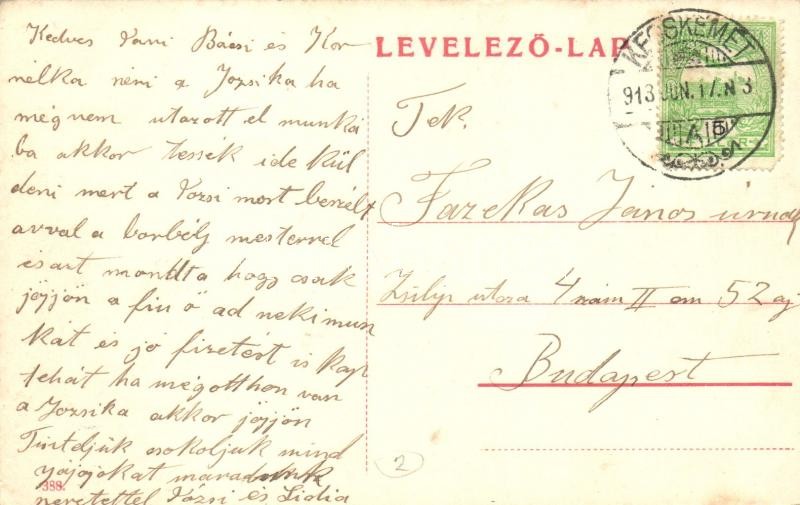 Kedves Vani Bácsi és Kor
nélka néni a Jozsika ha
mégnem utazott el munká
ba akkor tessék ide kül
deni mert a Vozsi most beszélt
avval a borbély mesterrel
ésazt mondta hogy csak
jöjjön a fiu ő ad neki mun
kát és jó fizetést is kap
tehát ha mégotthon van
a Jozsika akkor jöjjön
csokoljuk mind
nyájojokat maradunk
Vozsi és Lidia
388.
LEVELEZŐ-LAP
KECSKEMÉT
913 JUN. 17. N 3
A
Tek.
Fazekas János úrnak
Zsilip utca 4 szám II em 52 aj
Budapest
2